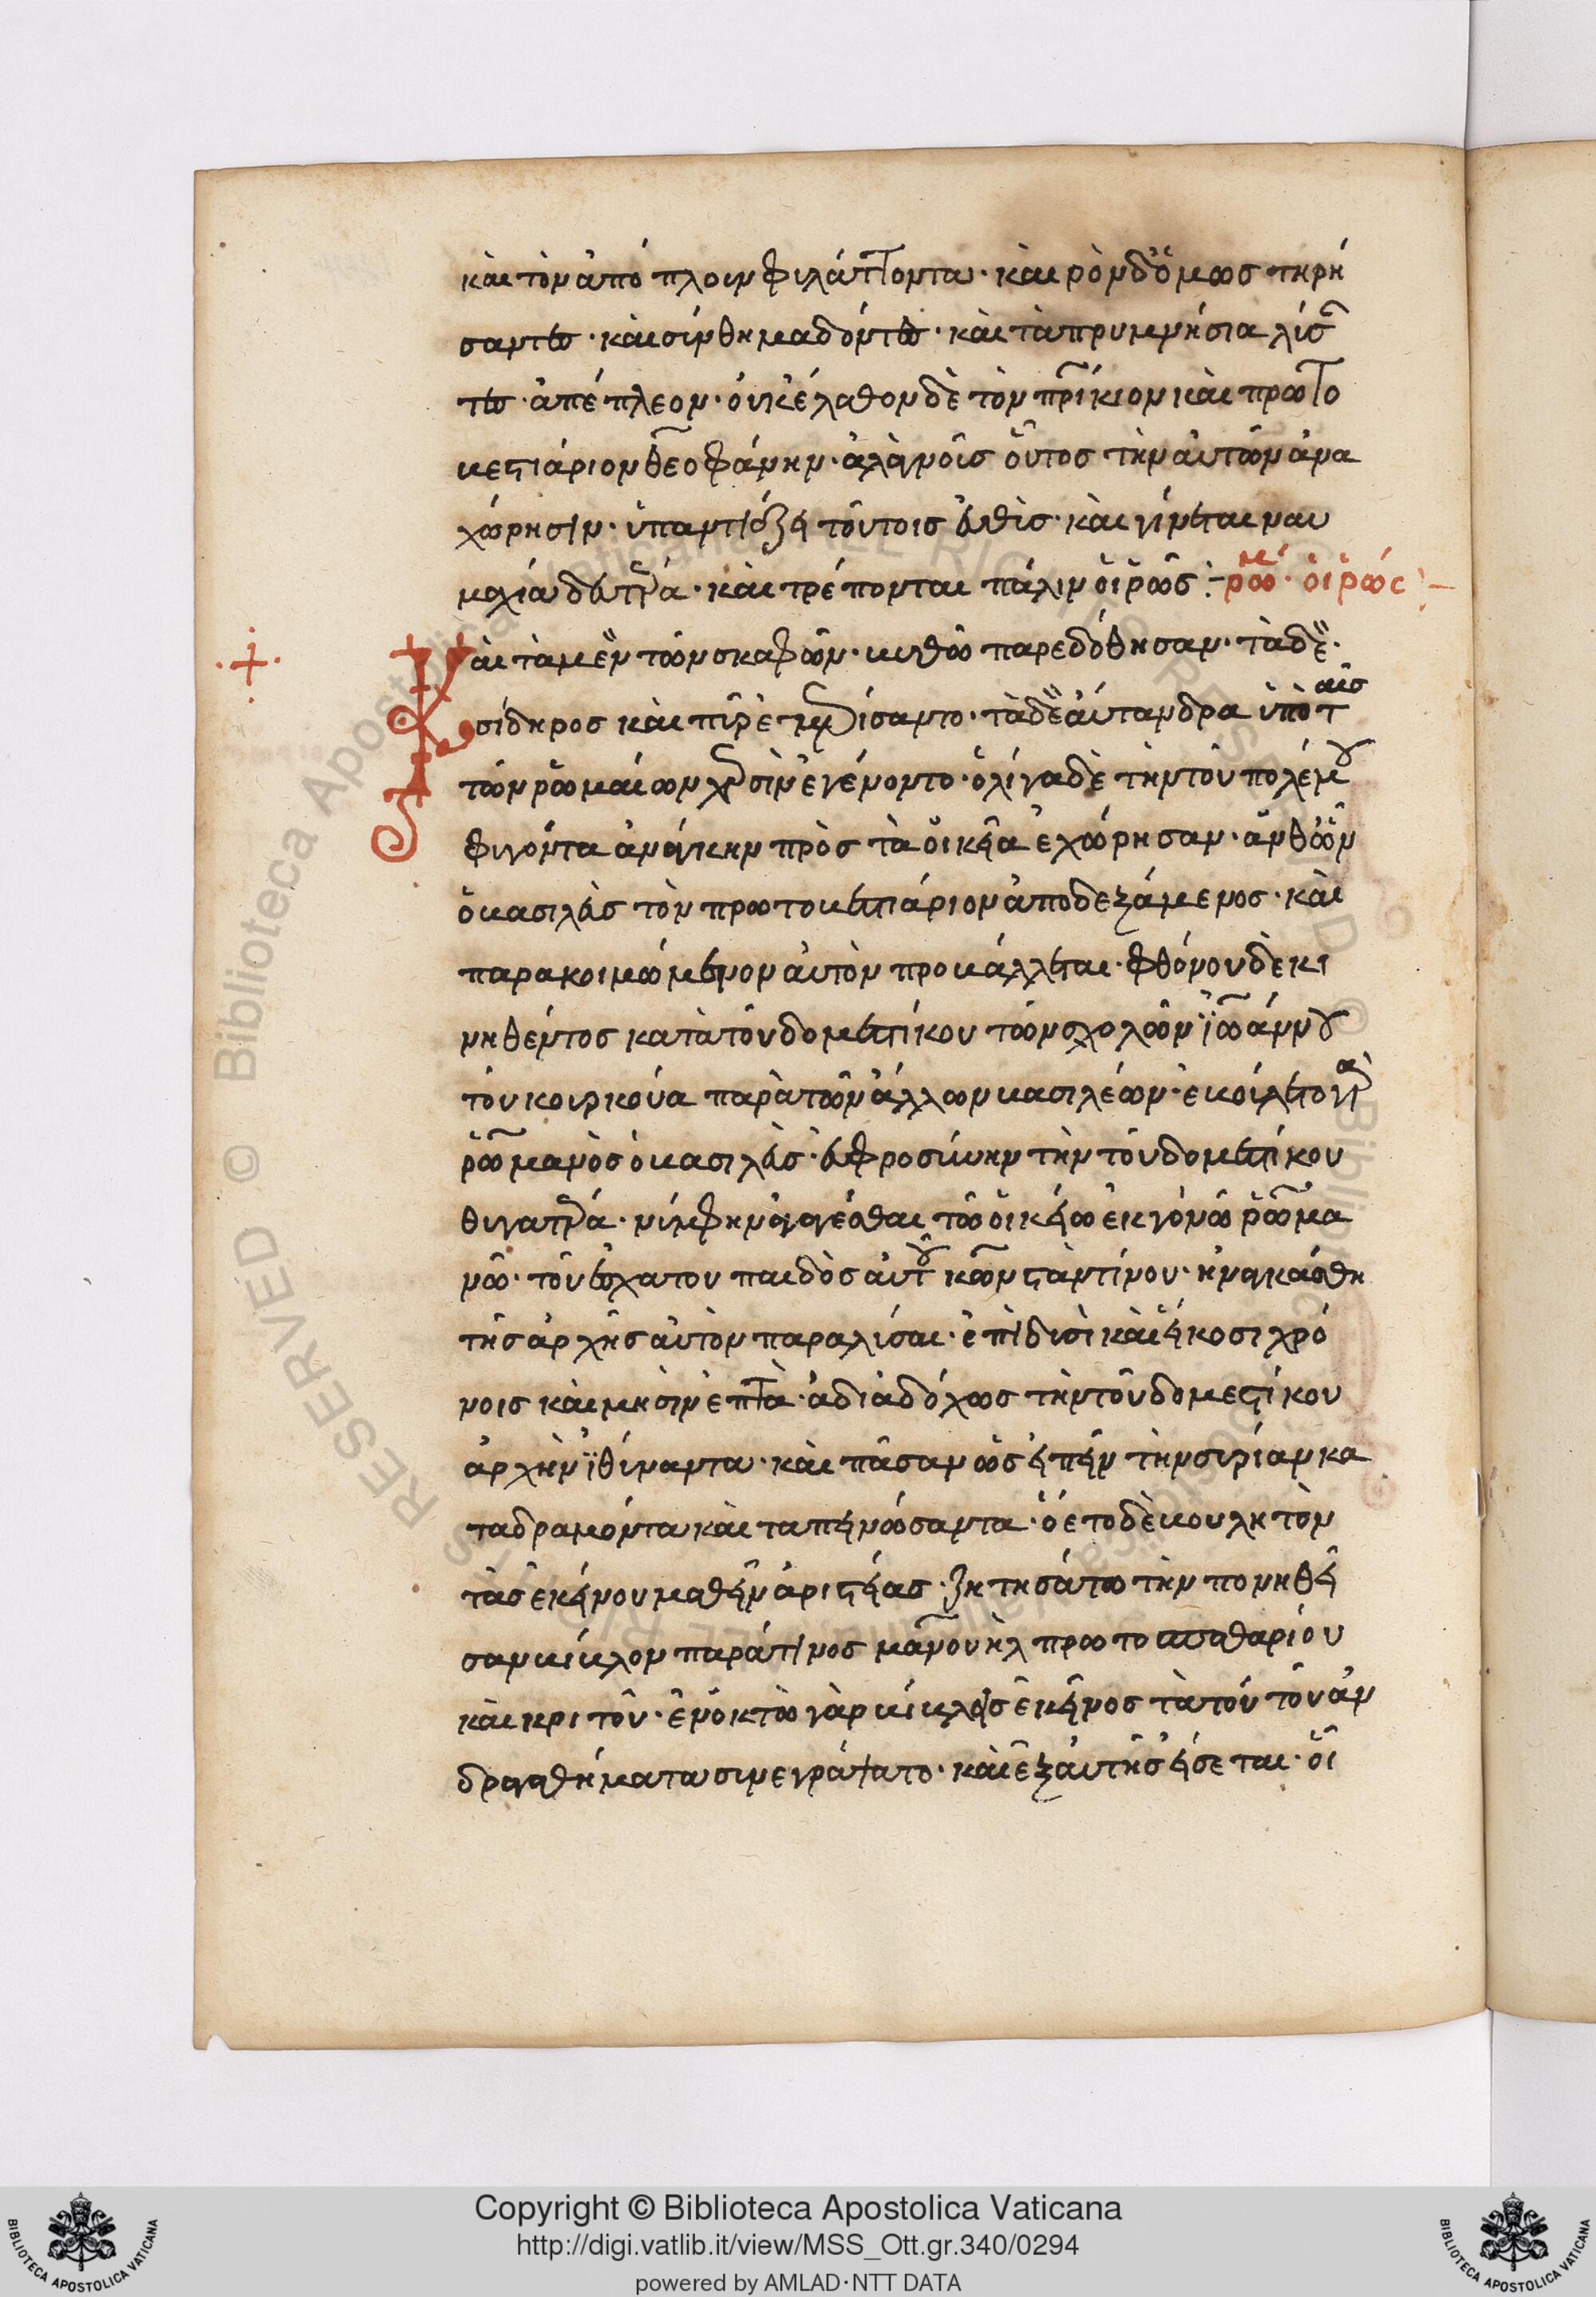 κὰι τὸν ἀπό πλοιν φιλάττοντα · κὰι ρὸνδὅμεως τηρή
σαντες · κὰι σίνθημα δόντες · κὰι τὰ πρυμνήσια λίσ
τες · ἀπέπλεον · ὀυκέλαθον δὲ τὸν πρίκιον κὰι πρωτο
βεστιάριον θεοφάνην · ἀλὰ γνοῖσ οὗτος τὴν ἀυτῶν ἀνα
χώρησιν · ὑπαντιάζει τούτοισ ἐυθὶσ · κὰι γίνεται ναυ
μαχία δευτερα · κὰι τρέπονται πάλιν οἱ ρῶς :- ρωμέ · οἱ ρῶς :-
Κὰι τὰ μὲν τῶν σκαφῶν · βιθῶ παρεδόθησαν · τὰ δὲ ·
σίδηρος κὰι πῖρ ἐμερίσαντο · τὰ δὲ ἀύτανδρα ὑπὸ ταῖσ
τῶν ρωμαίων χερσὶν ἐγένοντο · ὀλίγα δὲ τὴν τοῦ πολέμου
φιγόντα ἀνάγκην πρὸς τὰ οἰκεῖα ἐχώρησαν · ἀνθῶν
ὁ βασιλεὺς τὸν πρωτοβεστιάριον ἀποδεξάμενος · κὰι
παρακοιμώμενον ἀυτὸν προβάλλεται · φθόνου δὲ κι
νηθέντος κατὰ τοῦ δομεστίκου τῶν σχολῶν ἰωάννου
τοῦ κουρκούα παρὰ τῶν ἄλλων βασιλέων · ἐβούλετο γὰρ
ρωμανὸς ὁ βασιλεὺς · ἐυφροσύνην τὴν τοῦ δομεστίκου
θιγατερα · νίμφην ἀγαγέσθαι τῶ οἰκείω ἐκγόνω ρωμα
νῶ · τοῦ ἐσχατου παιδὸς ἀυτοῦ κωνσταντίνου · ἠναγκάσθη
τῆς ἀρχῆς ἀυτὸν παραλίσαι · ἐπὶ δισὶ κὰι εἴκοσι χρό
νοις κὰι μησὶν ἑπτὰ · ἀδιαδόχως τὴν τοῦ δομεστίκου
ἀρχὴν ἰθίναντα · κὰι πᾶσαν ὡς ἐιπεῖν τὴν σιρίαν κα
ταδραμόντα κὰι ταπεινώσαντα · ὁ ἐτο δὲ βουλητὸν
τὰς ἐκείνου μαθεῖν ἀριστείας · ζητησάτω τὴν πονηθεῖ
σαν βίβλον παρά τινος μανουὴλ πρωτοσπαθαρίου
κὰι κριτοῦ · ἐν ὀκτὼ γὰρ βίβλοις ἐκεῖνος τὰ τοῦ τοῦ ἀν
δραγαθήματα σινεγράψατο · κὰι ἐξ ἀυτῆς εἴσεται · οἵ
Copyright © Biblioteca Apostolica Vaticana
http://digi.vatlib.it/view/MSS_Ott.gr.340/0294
powered by AMLAD·NTT DATA